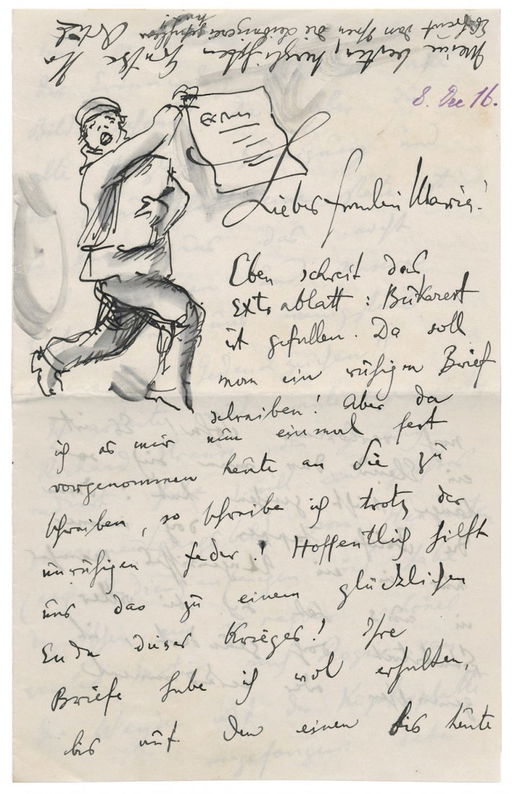 8. Dec 16.
Extra
Liebes Fräulein Marie!
Eben schreit das
Extrablatt : Bukarest
ist gefallen. Da soll
man ein ruhigen Brief
schreiben! Aber da
ich es mir nun einmal fest
vorgenommen heute an Sie zu
schreiben, so schreibe ich trotz der
unruhigen Feder! Hoffentlich hilft
uns das zu einem glücklichen
Ende dieses Krieges! Ihre
Briefe habe ich wol erhalten,
bis auf den einen bis heute
Meinen besten, herzlichsten